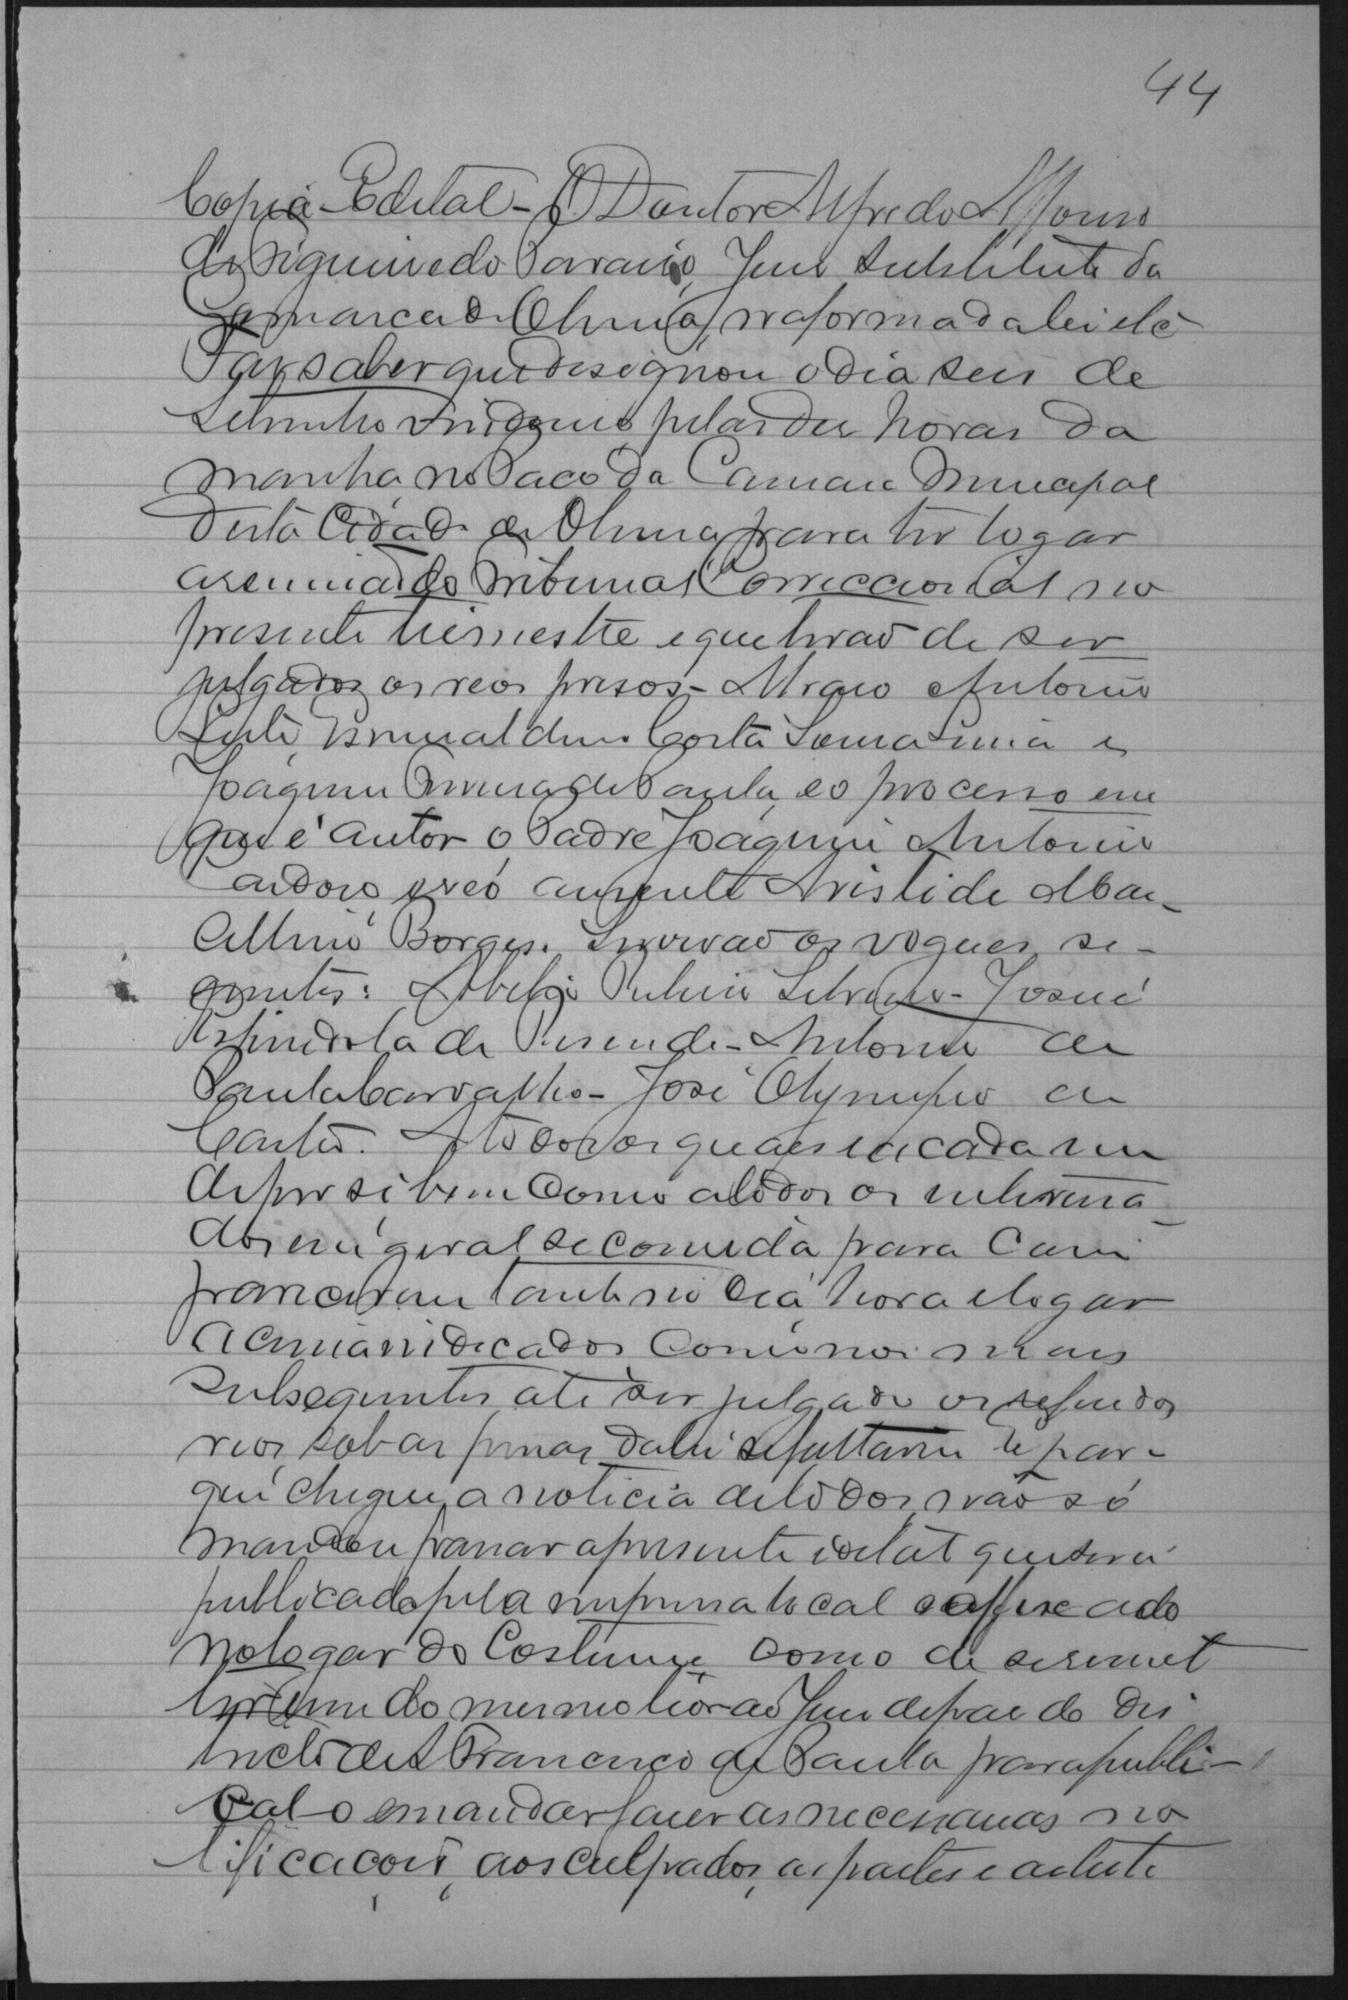 44
Copia - Edital - O Doutor Alfredo Affonso
de Figueiredo Paraiso, Juiz Substituto da
Comarca de Olinda, na forma da lei etc
Faz saber que designou o dia seis de
Setembro vindouro, pelas dez horas da
manhã, no Paço da Camara Municipal
desta Cidade de Olinda, para ter logar
a reunião do Tribunal Correccional no
presente trimestre e que terão de ser
julgados os reos presos - Antonio
Costa Lima e
Joaquim de Paula, e o processo em
que é autor o Padre Joaquim Antonio
e reó ausente Aristide
Borges. Servirão os vogaes se-
guintes: - Josué
Espindola de - Antonio de
Paula Carvalho - José Olympio de
Castro. A todos os quaes e a cada um
de per si bem como a todos os interessa-
dos em geral se convida para com
parecerem tanto no dia, hora e logar
acima indicados como nos mais
subsequentes até ser julgado os referidos
reos, sob as penas da lei se faltarem. E para
que chegue a noticia de todos, não só
mandou passar a presente edital que será
publicado pela imprensa local e affixado
no logar do Costume, como de se remet
terem do mesmo theor ao Juiz de paz do dis
tricto de S. Francisco de Paula para publi-
cal-o e mandar fazer as necessarias no
tificações, aos culpados, as partes e as teste